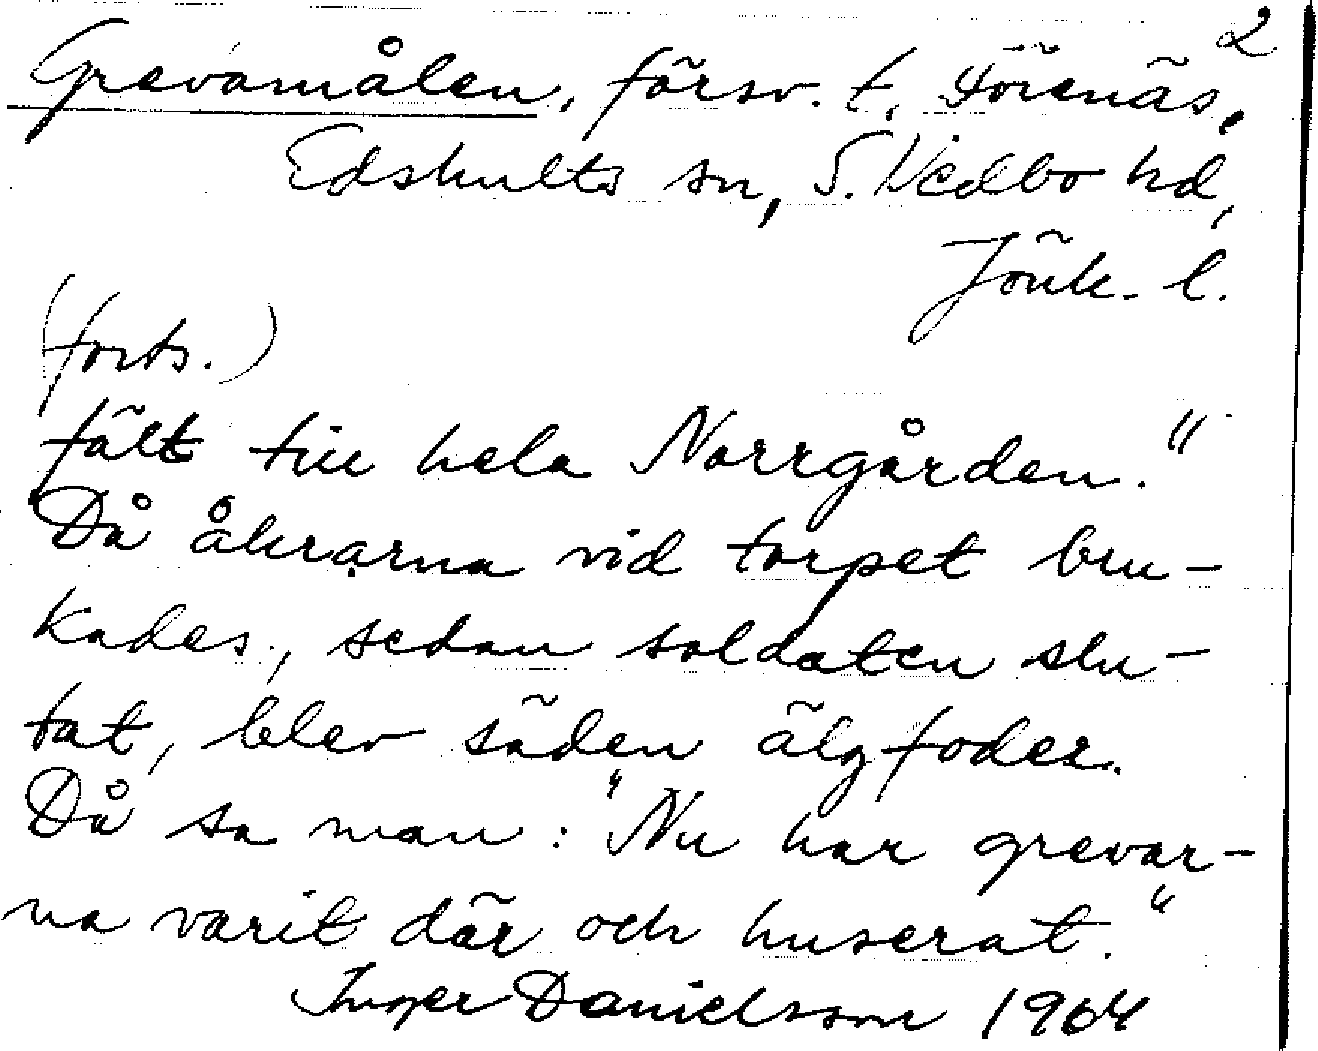 2
Grevamålen, försv. t. Förenäs,
Edshults sn, S. Vedbo hd,
Jönk. l.
(forts.)
fält till hela Norrgården."
Då åkrarna vid torpet bru-
kades, sedan soldaten slu-
tat, blev säden älgfoder.
Då sa man: "Nu har grevar-
na varit där och huserat."
Inger Danielsson 1964